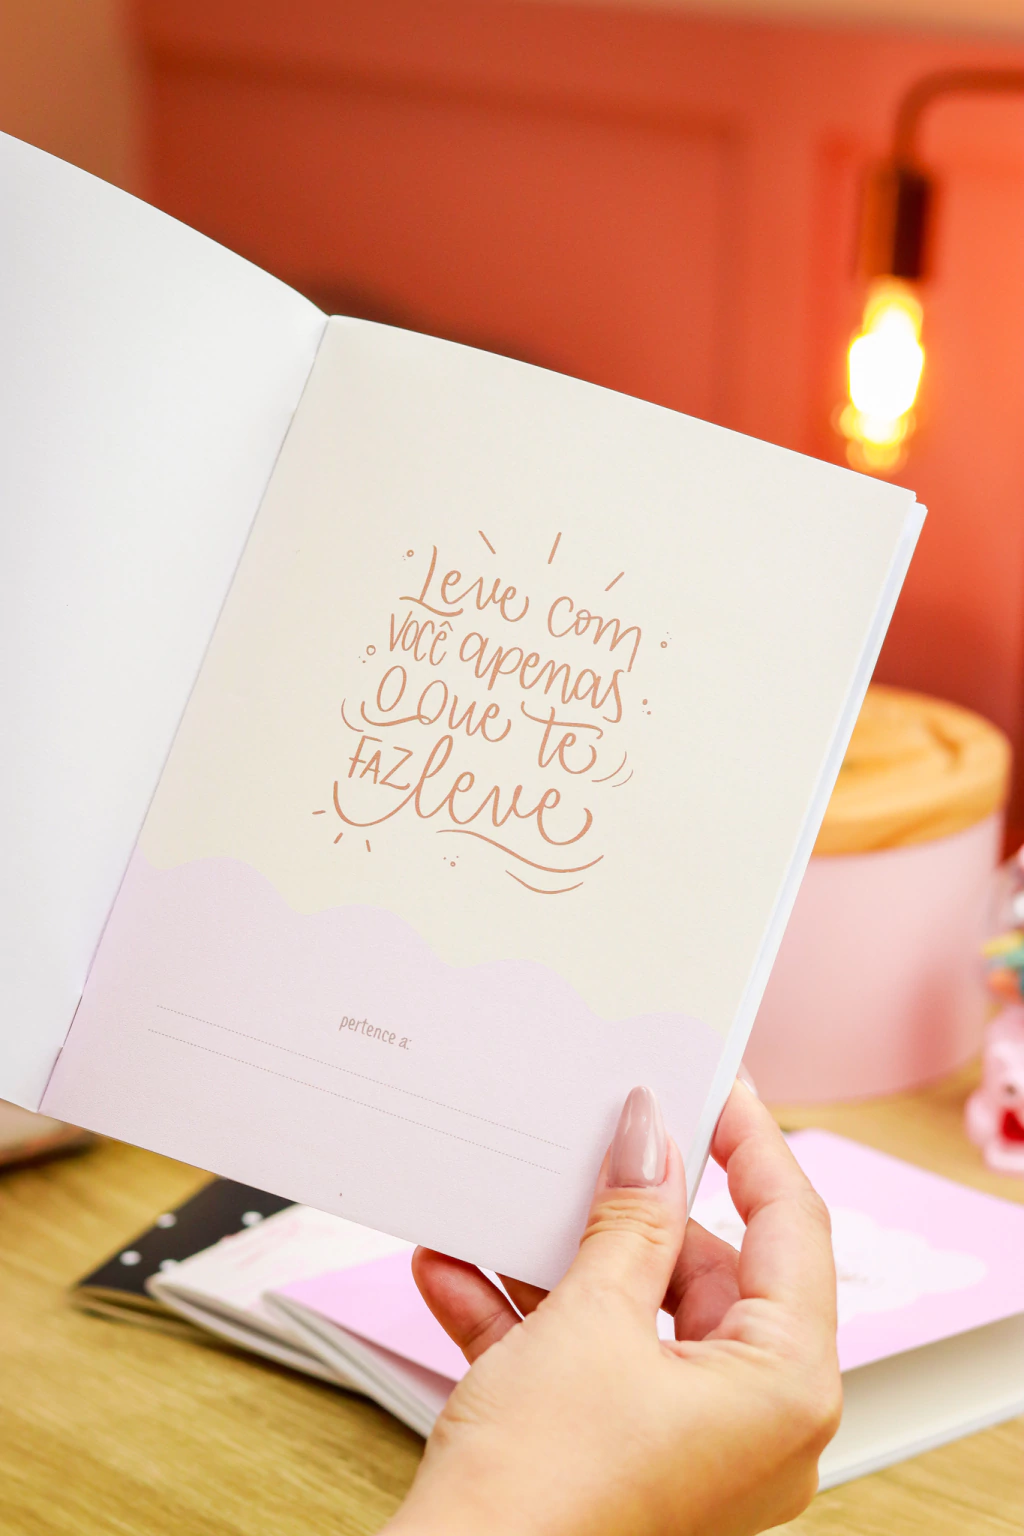 Leve com
você apenas
o que te
FAZ leve
pertence a: